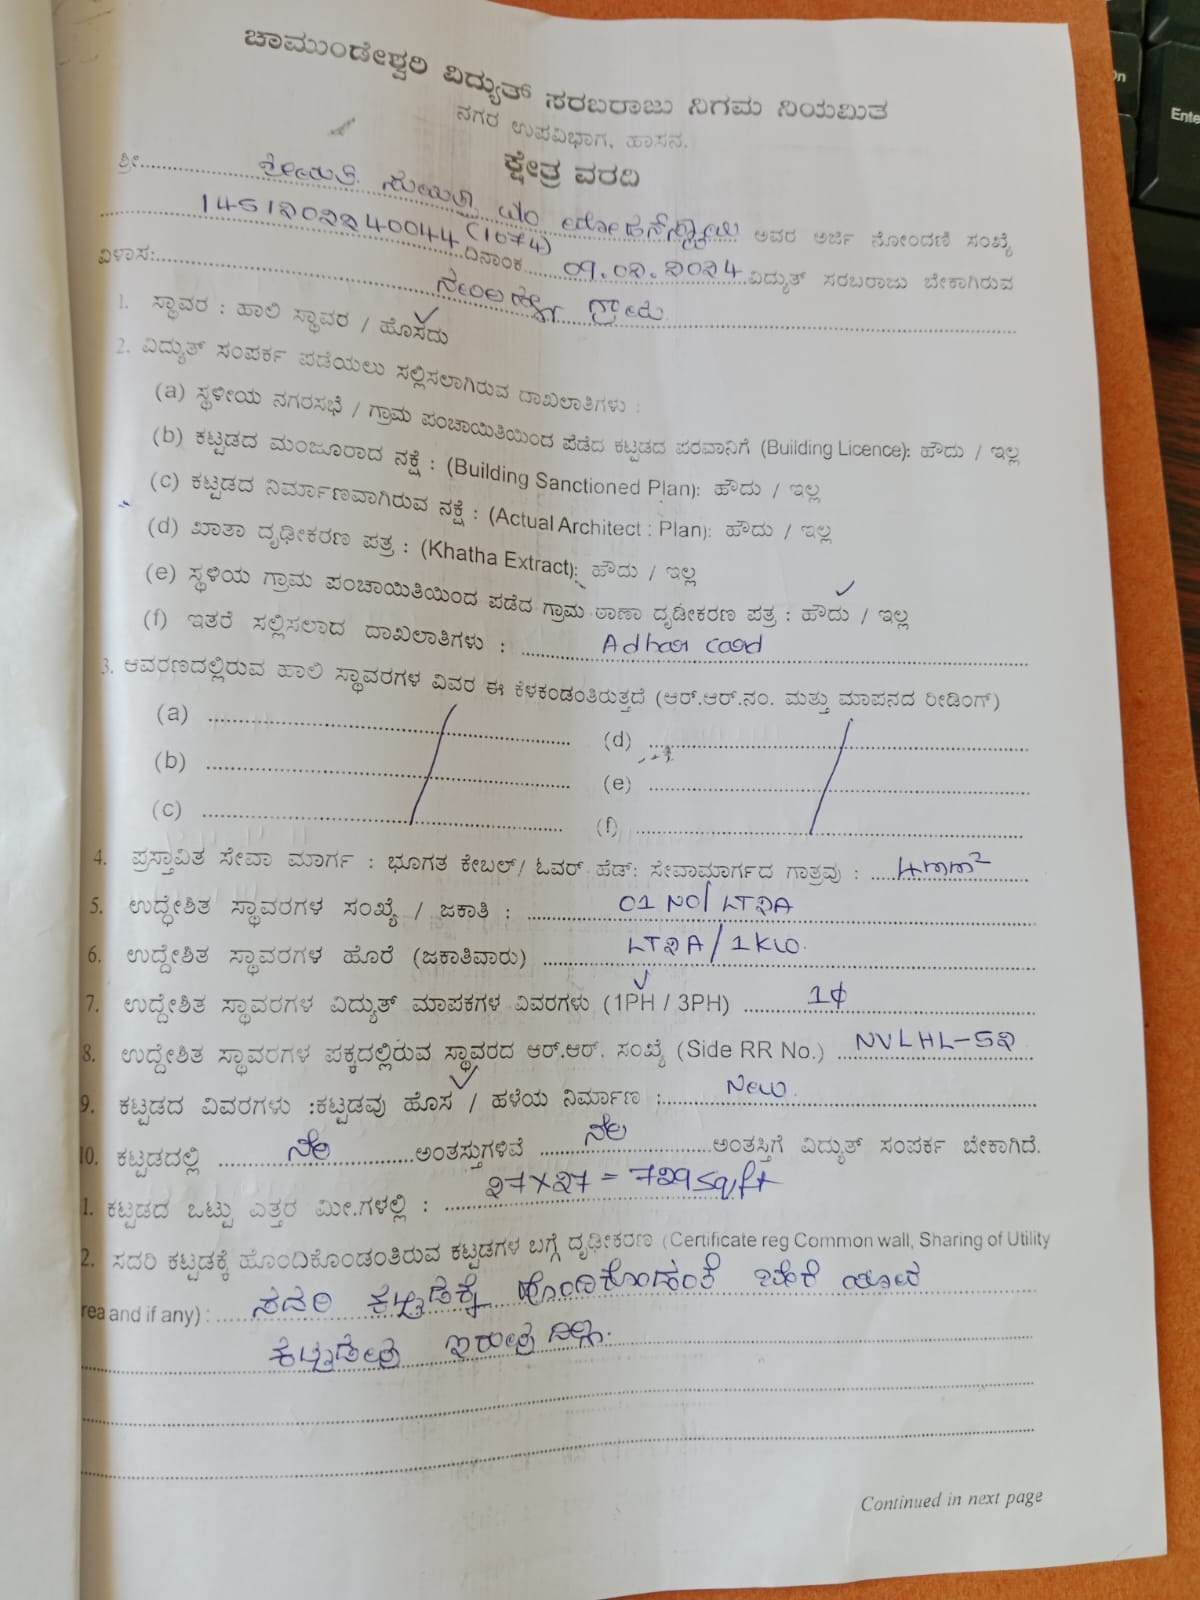 ಚಾಮುಂಡೇಶ್ವರಿ ವಿದ್ಯುತ್ ಸರಬರಾಜು ನಿಗಮ ನಿಯಮಿತ
ನಗರ ಉಪವಿಭಾಗ, ಹಾಸನ.
ಕ್ಷೇತ್ರ ವರದಿ
ಶ್ರೀ ಶ್ರೀಮತಿ. ಅವರ ಅರ್ಜಿ ನೋಂದಣಿ ಸಂಖ್ಯೆ
145120೨೨40044 (1074) ದಿನಾಂಕ 09.0೨.೨0೨4 ವಿದ್ಯುತ್ ಸರಬರಾಜು ಬೇಕಾಗಿರುವ
ವಿಳಾಸ: ಗ್ರಾಮ
1. ಸ್ಥಾವರ : ಹಾಲಿ ಸ್ಥಾವರ / ಹೊಸದು
2. ವಿದ್ಯುತ್ ಸಂಪರ್ಕ ಪಡೆಯಲು ಸಲ್ಲಿಸಲಾಗಿರುವ ದಾಖಲಾತಿಗಳು :
(a) ಸ್ಥಳೀಯ ನಗರಸಭೆ / ಗ್ರಾಮ ಪಂಚಾಯಿತಿಯಿಂದ ಪಡೆದ ಕಟ್ಟಡದ ಪರವಾನಿಗೆ (Building Licence): ಹೌದು / ಇಲ್ಲ
(b) ಕಟ್ಟಡದ ಮಂಜೂರಾದ ನಕ್ಷೆ : (Building Sanctioned Plan): ಹೌದು / ಇಲ್ಲ
(c) ಕಟ್ಟಡದ ನಿರ್ಮಾಣವಾಗಿರುವ ನಕ್ಷೆ : (Actual Architect : Plan): ಹೌದು / ಇಲ್ಲ
(d) ಖಾತಾ ದೃಢೀಕರಣ ಪತ್ರ : (Khatha Extract): ಹೌದು / ಇಲ್ಲ
(e) ಸ್ಥಳಿಯ ಗ್ರಾಮ ಪಂಚಾಯಿತಿಯಿಂದ ಪಡೆದ ಗ್ರಾಮ ಠಾಣಾ ದೃಡೀಕರಣ ಪತ್ರ : ಹೌದು / ಇಲ್ಲ
(f) ಇತರೆ ಸಲ್ಲಿಸಲಾದ ದಾಖಲಾತಿಗಳು : Adhar card
3. ಆವರಣದಲ್ಲಿರುವ ಹಾಲಿ ಸ್ಥಾವರಗಳ ವಿವರ ಈ ಕೆಳಕಂಡಂತಿರುತ್ತದೆ (ಆರ್.ಆರ್.ನಂ. ಮತ್ತು ಮಾಪನದ ರೀಡಿಂಗ್)
(a) (d)
(b) (e)
(c) (f)
4. ಪ್ರಸ್ತಾವಿತ ಸೇವಾ ಮಾರ್ಗ : ಭೂಗತ ಕೇಬಲ್/ ಓವರ್ ಹೆಡ್: ಸೇವಾಮಾರ್ಗದ ಗಾತ್ರವು : 4mm²
5. ಉದ್ದೇಶಿತ ಸ್ಥಾವರಗಳ ಸಂಖ್ಯೆ / ಜಕಾತಿ : 01 NO/ LT೨A
6. ಉದ್ದೇಶಿತ ಸ್ಥಾವರಗಳ ಹೊರೆ (ಜಕಾತಿವಾರು) LT೨A/1KW.
7. ಉದ್ದೇಶಿತ ಸ್ಥಾವರಗಳ ವಿದ್ಯುತ್ ಮಾಪಕಗಳ ವಿವರಗಳು (1PH / 3PH) 1ϕ
8. ಉದ್ದೇಶಿತ ಸ್ಥಾವರಗಳ ಪಕ್ಕದಲ್ಲಿರುವ ಸ್ಥಾವರದ ಆರ್.ಆರ್. ಸಂಖ್ಯೆ (Side RR No.) NVLHL-5೨
9. ಕಟ್ಟಡದ ವಿವರಗಳು :ಕಟ್ಟಡವು ಹೊಸ / ಹಳೆಯ ನಿರ್ಮಾಣ : New.
10. ಕಟ್ಟಡದಲ್ಲಿ ನೆಲ ಅಂತಸ್ತುಗಳಿವೆ ನೆಲ ಅಂತಸ್ತಿಗೆ ವಿದ್ಯುತ್ ಸಂಪರ್ಕ ಬೇಕಾಗಿದೆ.
1. ಕಟ್ಟಡದ ಒಟ್ಟು ಎತ್ತರ ಮೀ.ಗಳಲ್ಲಿ : ೨7×೨7 = 7೨9sqft
2. ಸದರಿ ಕಟ್ಟಡಕ್ಕೆ ಹೊಂದಿಕೊಂಡಂತಿರುವ ಕಟ್ಟಡಗಳ ಬಗ್ಗೆ ದೃಢೀಕರಣ (Certificate reg Common wall, Sharing of Utility
rea and if any) : ಸದರಿ ಕಟ್ಟಡಕ್ಕೆ ಹೊಂದಿಕೊಂಡಂತೆ ಬೇರೆ ಯಾವ
ಕಟ್ಟಡವು ಇರುವುದಿಲ್ಲ.
Continued in next page
Enter